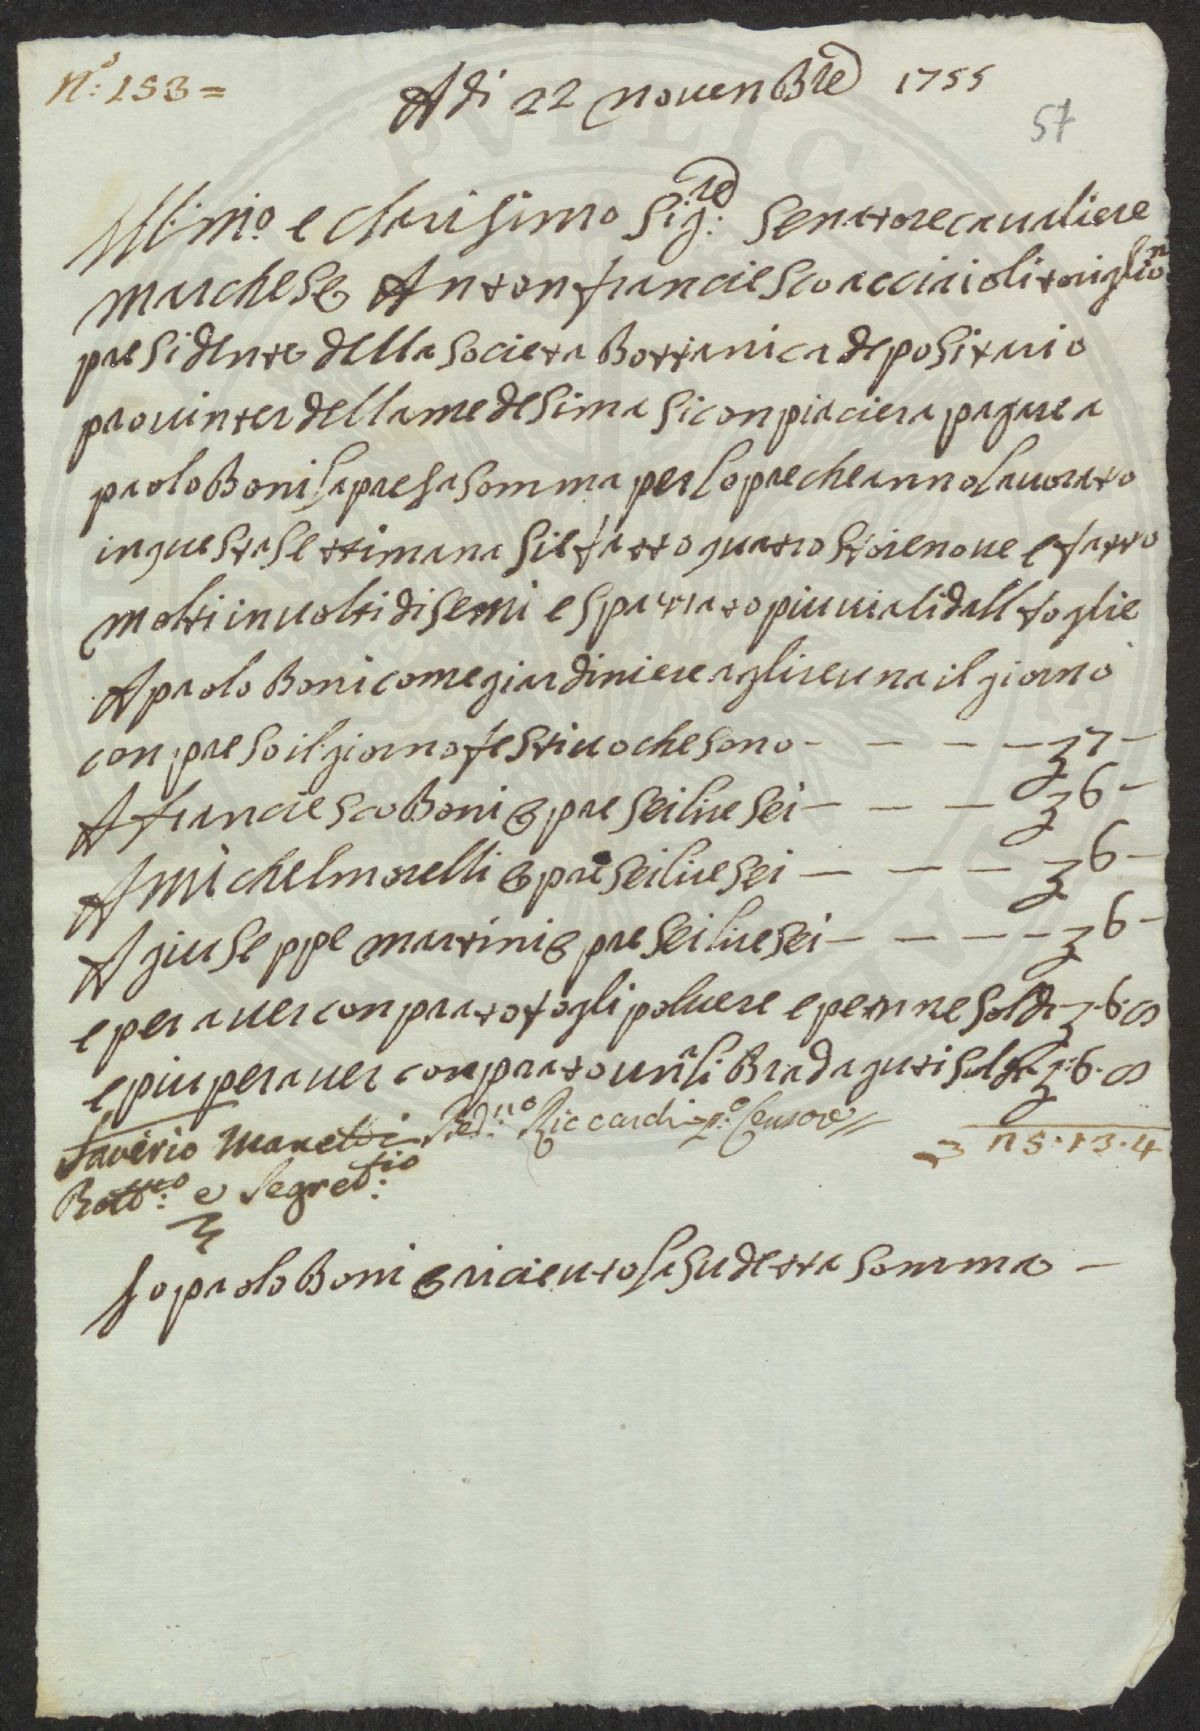 N.º 153 =
A di 22 novenbre 1755
57
Ill:mo. e clarisimo Sig:re Senatore cavaliere
marchese Antonfranciesco acciaioli
presidente della societa Bottanica depositario
provinter della medesima si conpiaciera pagare a
paolo Boni la presa somma per lopre che anno lavorato
in questa settimana sie fatto quatro store nove e fatto
molti involti di semi e spazzato piu viali dall foglie
A paolo Boni come giardiniere a glire una il giorno
conpreso il giorno festivo che sono - - - - ʒ 7 -
A franciesco Boni e pre sei lire sei - - - ʒ 6 -
A Michel morelli e pre sei lire sei - - - ʒ 6 -
A giuseppe martini e pre sei lire sei - - - - ʒ 6 -
e per aver conprato fogli polvere e penne soldi ʒ-.6.8
e piu per aver conprato un li Bra daguti soldi ʒ:6.8
Saverio Manetti Red:no Riccardi p:o Censore // ʒ 25.13.4
Bott:co e Segret:rio
Io paolo Boni e ricieuto la sudetta somma -